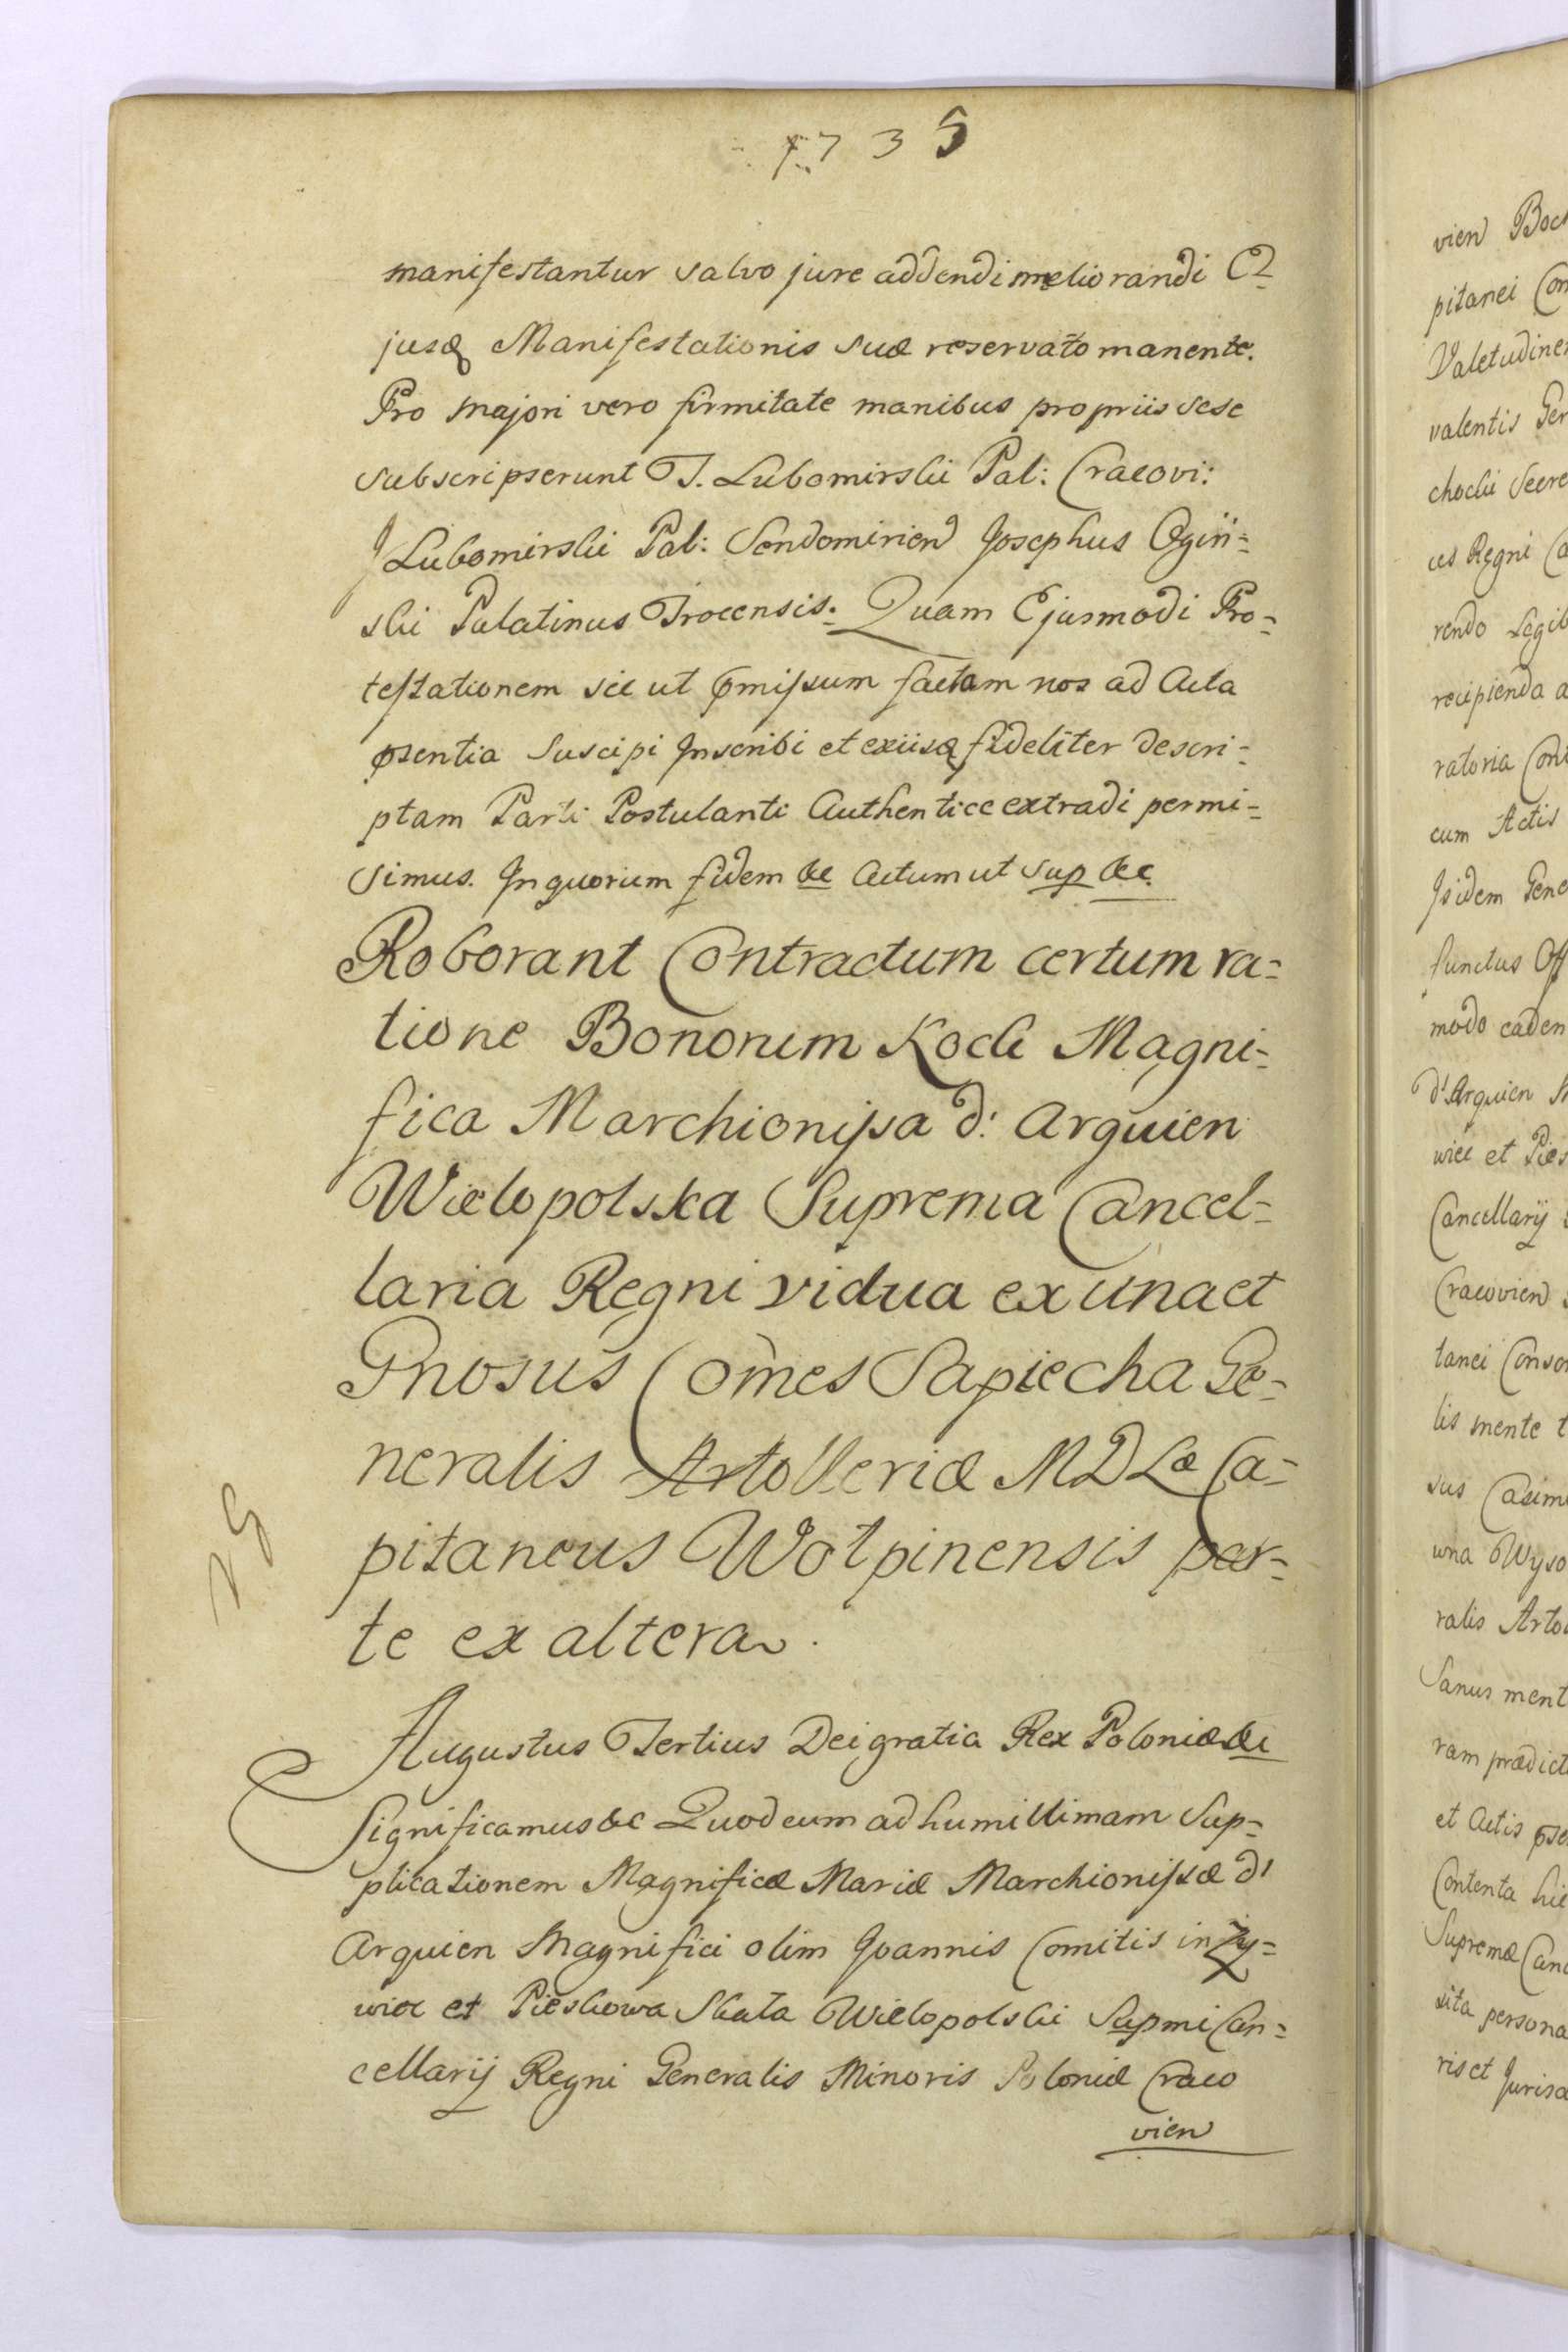 1735
manifestantur salvo jure addendi meliorandi Ej
jusq Manifestationis suæ reservato manente.
Pro majori vero firmitate manibus propriis sese
subscripserunt T. Lubomirski Pal: Cracovi:
J Lubomirski Pal: Sendomirien Josephus Ogiń=
ski Palatinus Trocensis. Quam Ejusmodi Pro=
testationem sic ut pmissum factam nos ad Acta
psentia Suscipi Inscribi et exiisq fideliter descri=
ptam Parti Postulanti Authentice extradi permi=
simus. In quorum fidem &c Actum ut sup &c
Roborant Contractum certum ra=
tione Bonorum Kock Magni=
fica Marchionissa d' Arquien
Wielopolska Suprema Cancel=
laria Regni vidua ex una et
Gnosus Comes Sapiecha Ge=
neralis Artolleriæ MDLæ Ca=
pitaneus Wołpinensis par=
te ex altera.
25
Augustus Tertius Dei gratia Rex Poloniæ &c
Significamus &c Quod cum ad humillimam Sup=
plicationem Magnificæ Mariæ Marchionissæ d'
Arquien Magnifici olim Joannis Comitis in Zy=
wiec et Pieskowa Skała Wielopolski Supmi Can=
cellarij Regni Generalis Minoris Poloniæ Craco
vien
vien
pitanei
Valetudine
valentis
ces Regni
rendo Legib
recipienda
ratoria
cum Actis
Isidem Gene
functus Off
modo eaden
d'Arquien
wiec et Pies
Cancellarij
Cracovien
tanei Conso
lis mente
sus Casim
una Wyso
ralis Arto
Sanus ment
ram prædict
et Actis pse
Contenta hic
Supremæ Canc
sita persona
ris et Juris